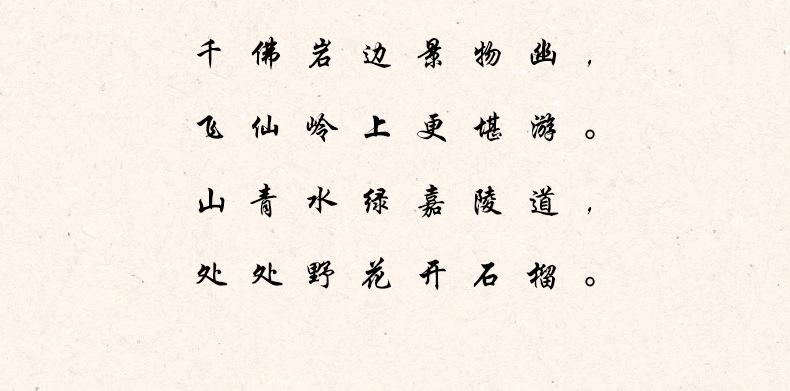 千佛岩边景物幽，
飞仙岭上更堪游。
山青水绿嘉陵道，
处处野花开石榴。